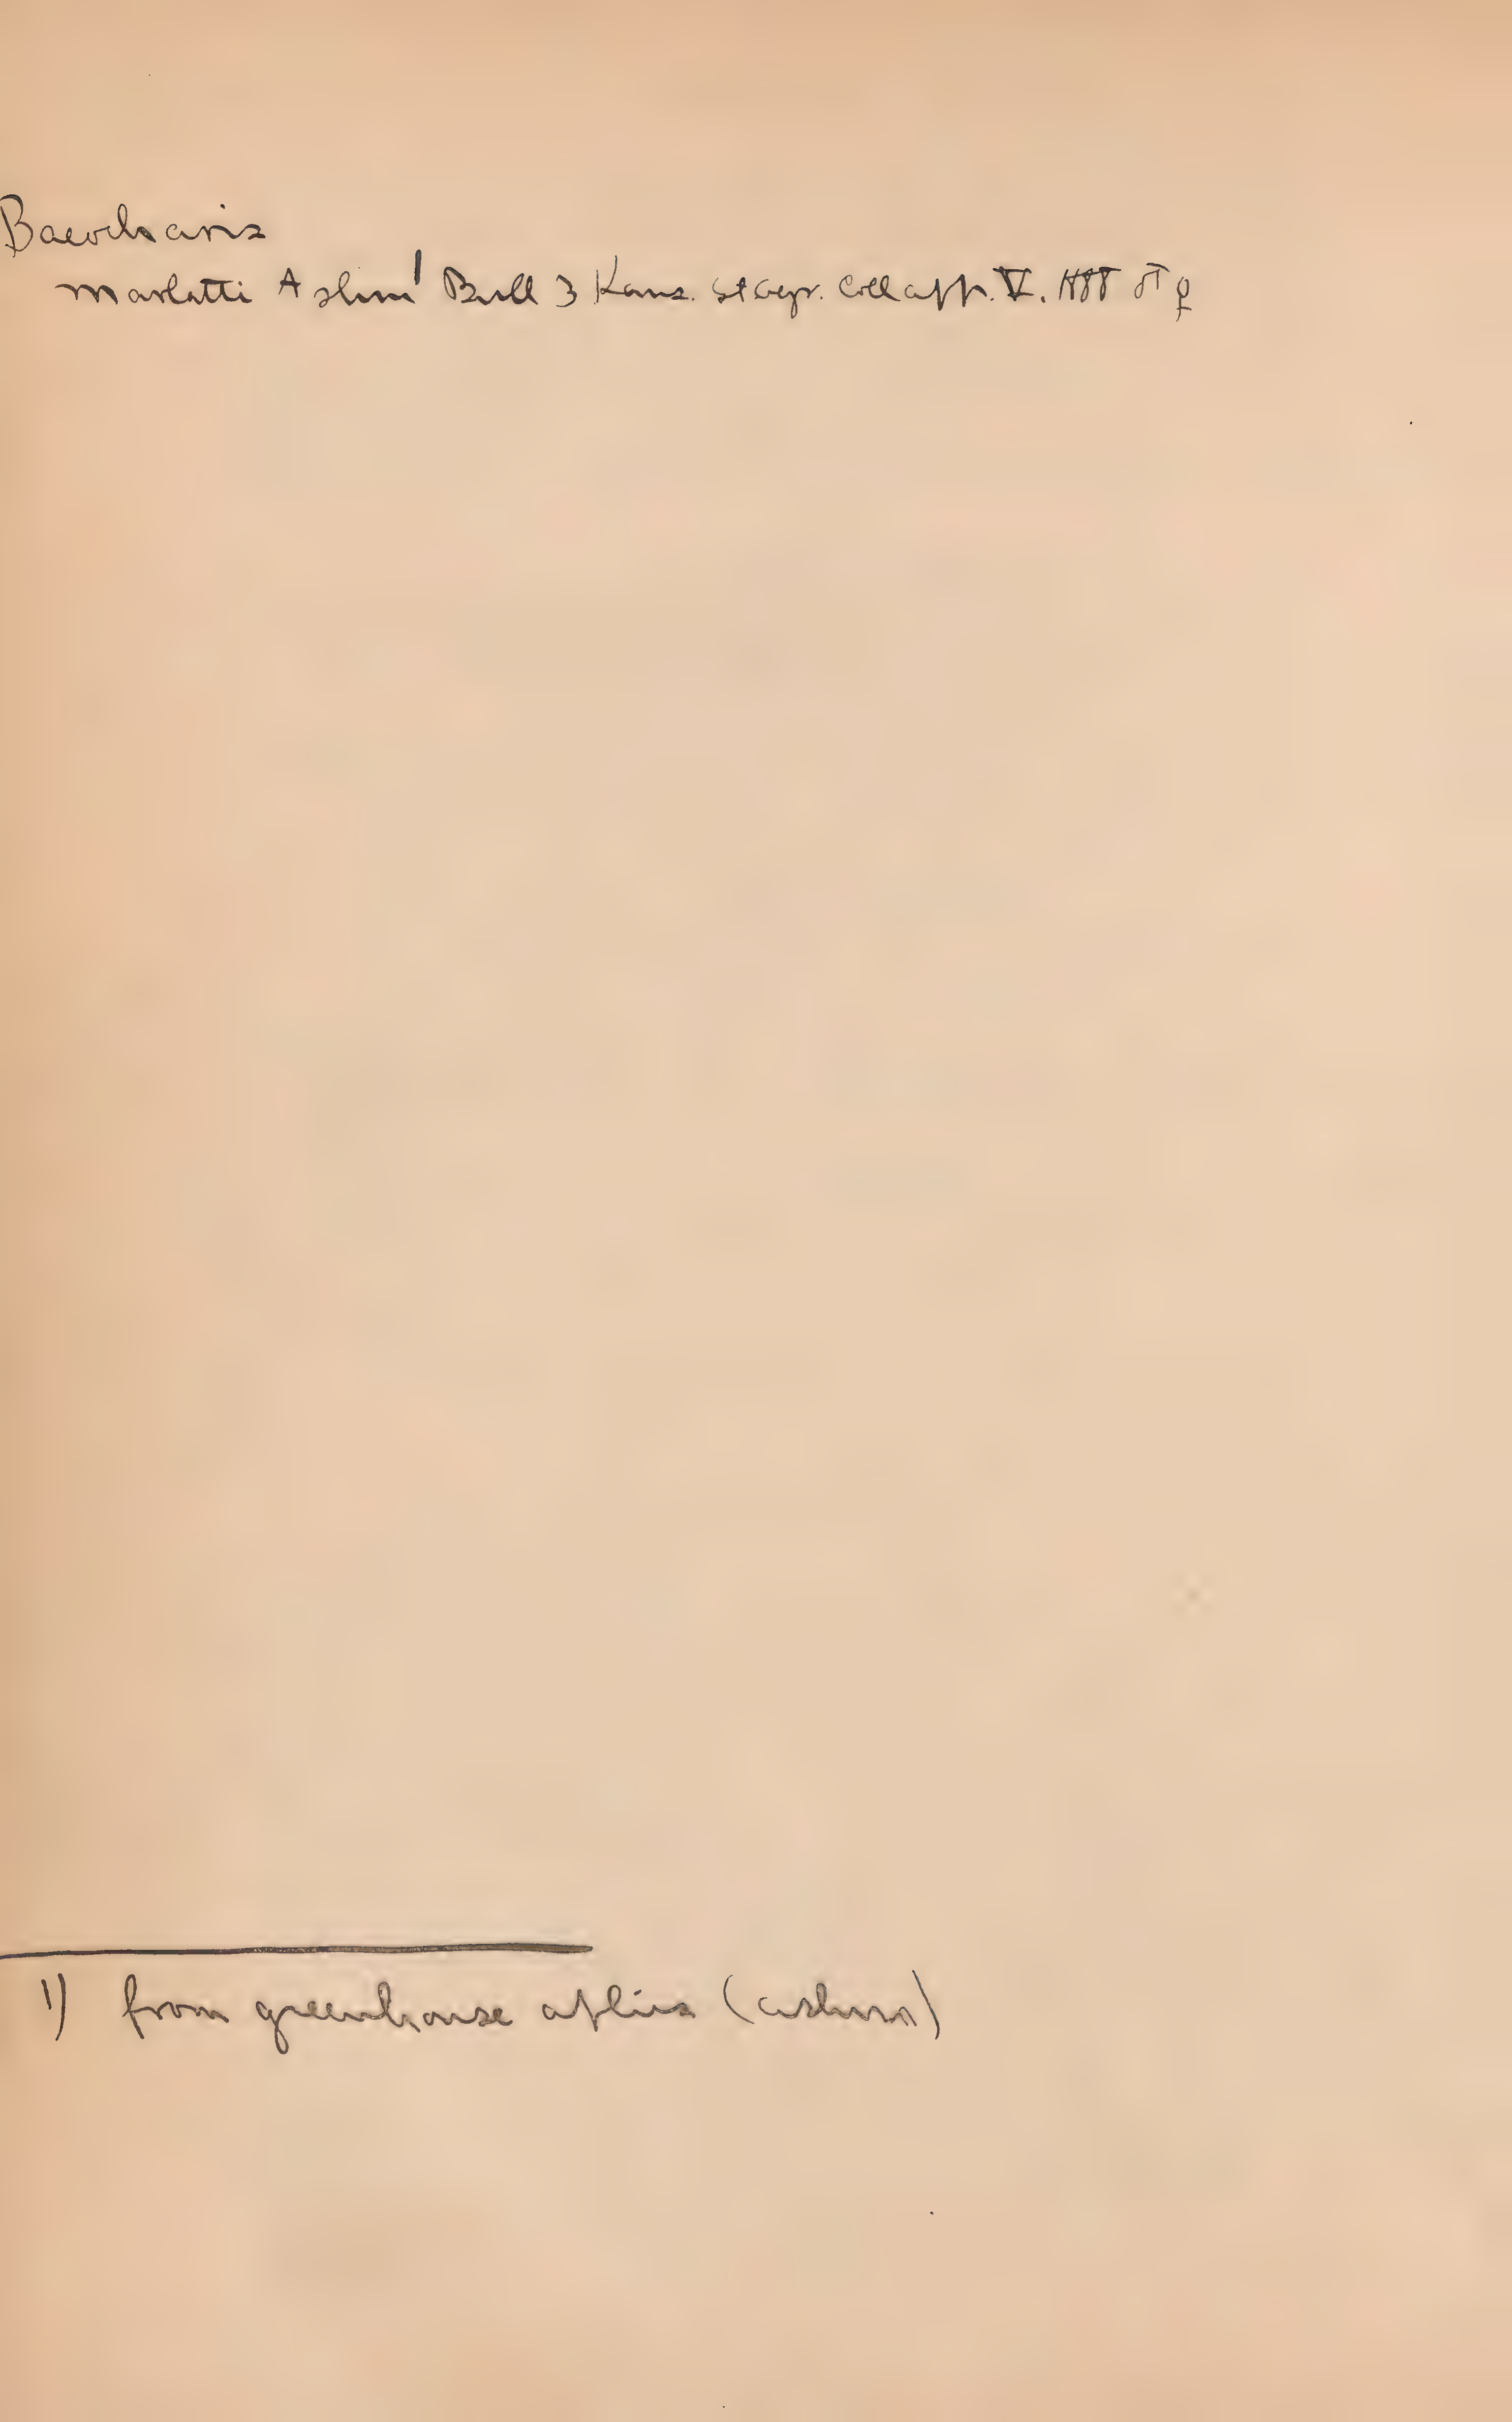 Baeocharis
Marlatti Ashm¹ Bull 3 Kans. St agr. Coll app. V. 1888 ♂ ♀
1) from greenhouse aphis (ashm)